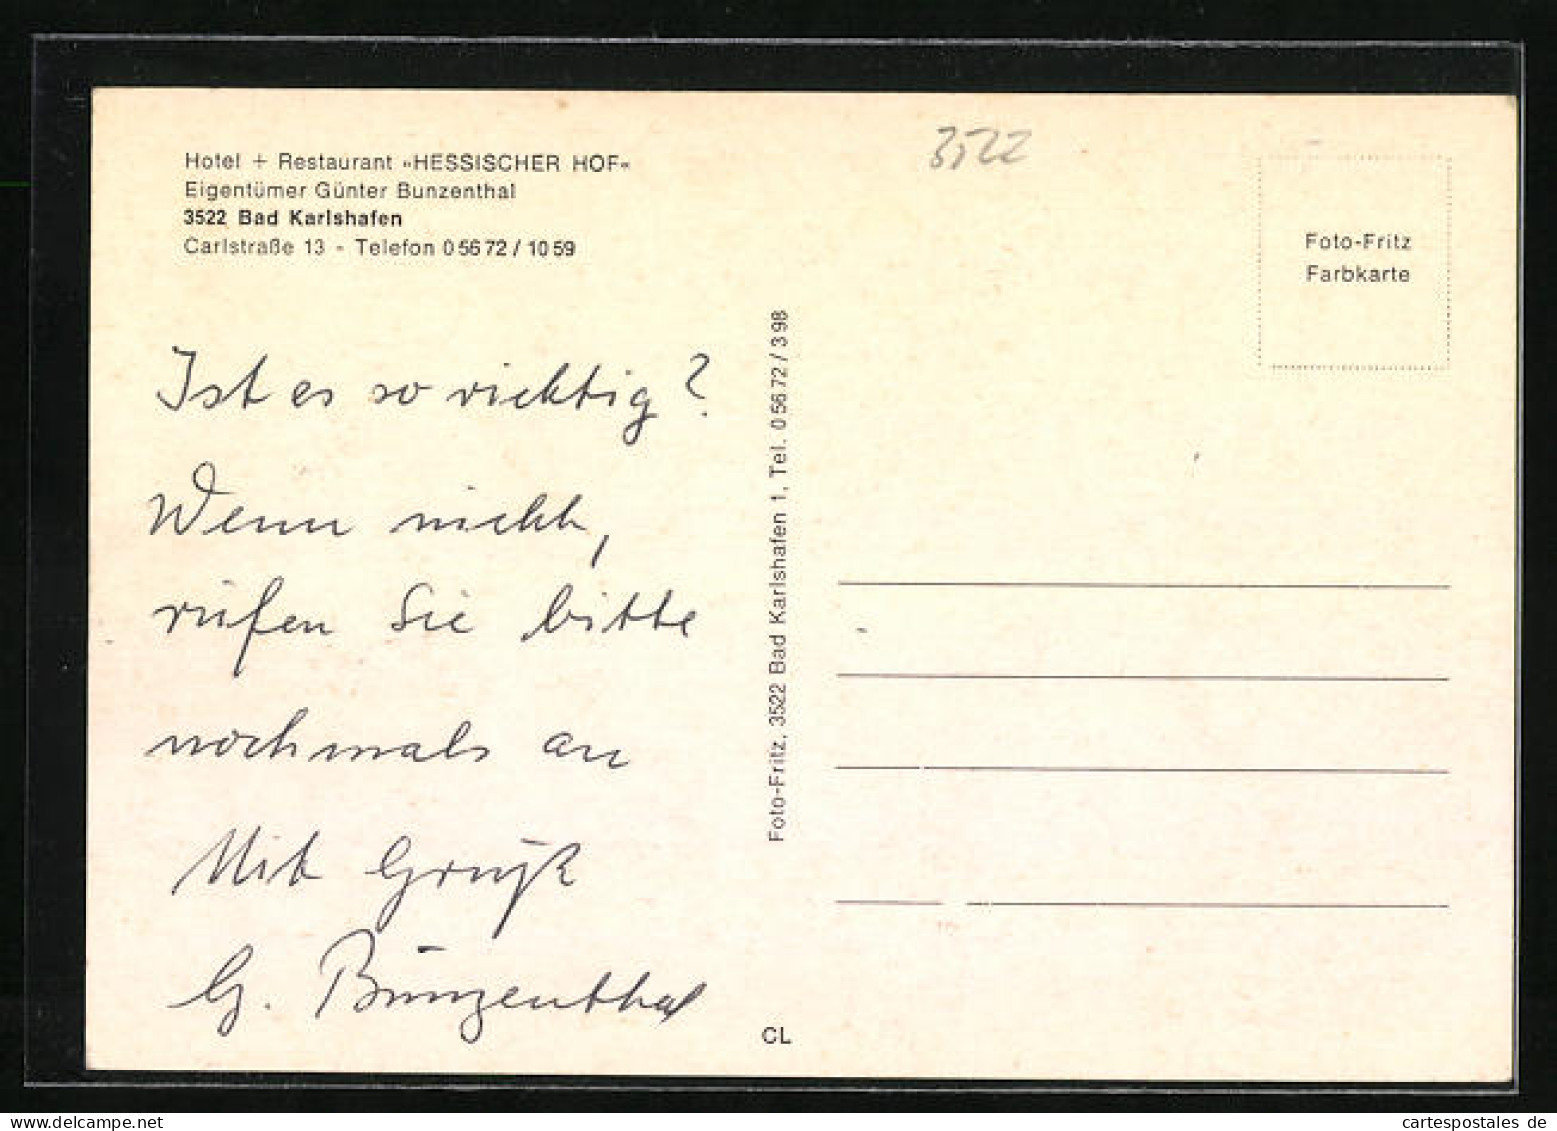 Hotel + Restaurant »HESSISCHER HOF«
Eigentümer Günter Bunzenthal
3522 Bad Karlshafen
Carlstraße 13 - Telefon 0 56 72 / 10 59
3522
Foto-Fritz
Farbkarte
Ist es so richtig?
Wenn nicht,
rufen Sie bitte
nochmals an
Mit Gruß
G. Bunzenthal
Foto-Fritz, 3522 Bad Karlshafen 1, Tel. 0 56 72 / 3 98
CL
www.delcampe.net
cartespostales de